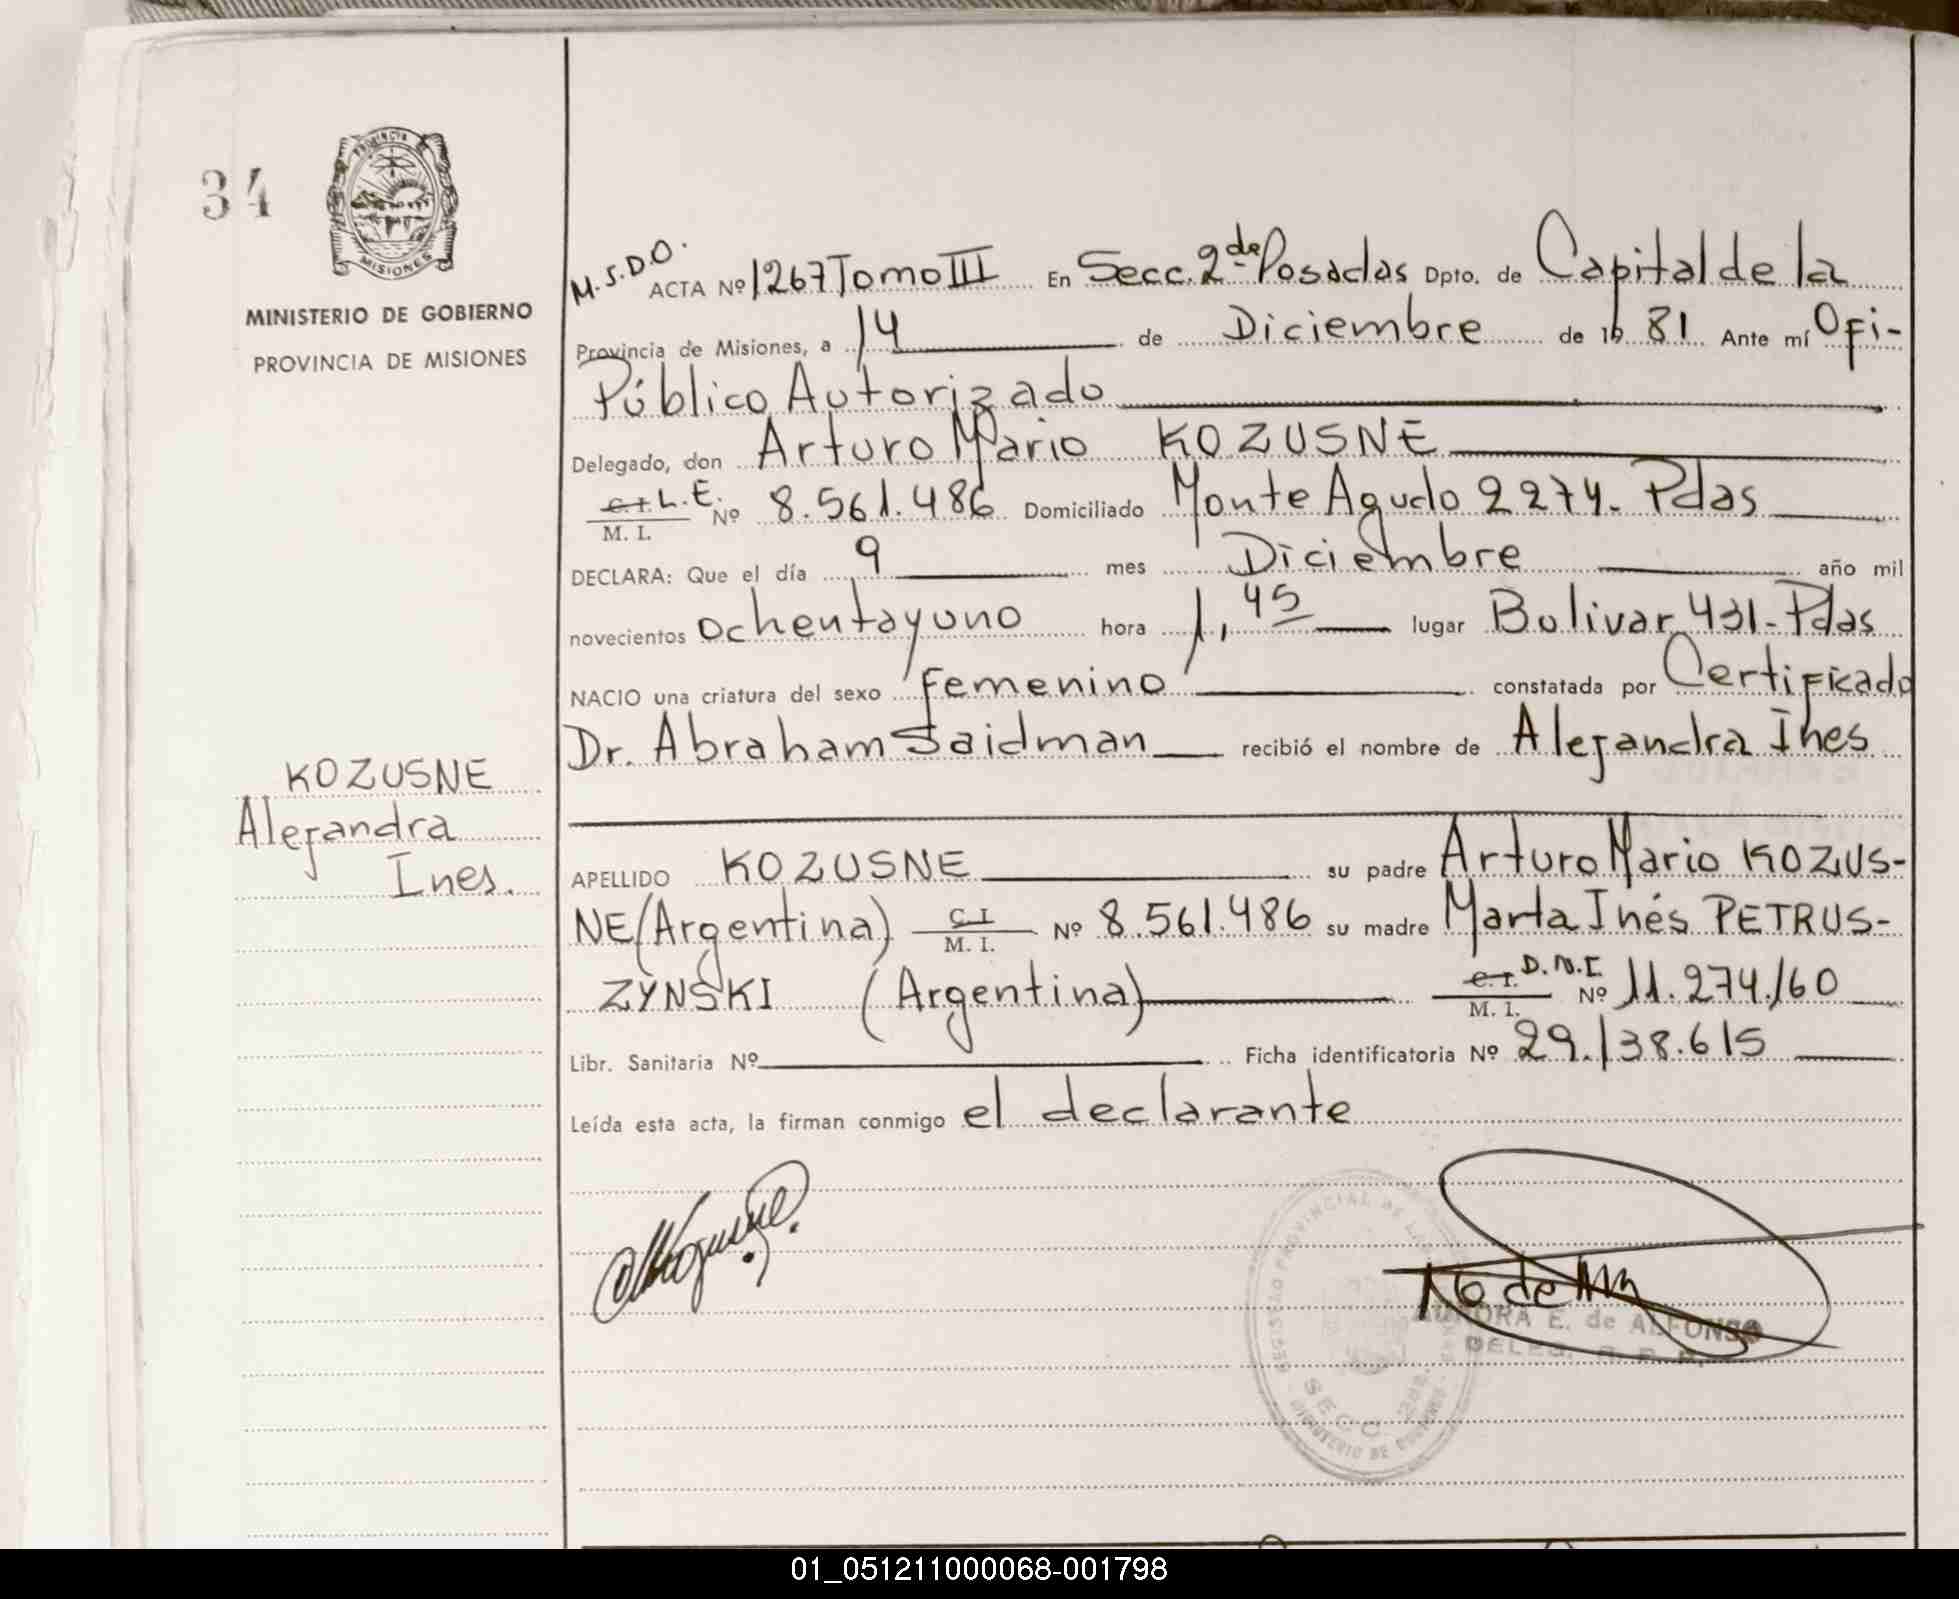 34
PROVINCIA
MISIONES
MINISTERIO DE GOBIERNO
PROVINCIA DE MISIONES
KOZUSNE
Alejandra
Ines.
M.S.D.O.
ACTA Nº 1267 Tomo III En Secc. 2da Posadas Dpto. de Capital de la
Provincia de Misiones, a 14 de Diciembre de 19 81 Ante mí Ofi-
Público Autorizado
Delegado, don Arturo Mario KOZUSNE
C.I. L.E. Nº 8.561.486 Domiciliado Monte Agudo 2274.- Pdas
M. I.
DECLARA: Que el día 9 mes Diciembre año mil
novecientos ochentayuno hora 1,45 lugar Bolivar 431- Pdas
NACIO una criatura del sexo femenino constatada por Certificado
Dr. Abraham Saidman recibió el nombre de Alejandra Ines
APELLIDO KOZUSNE su padre Arturo Mario KOZUS-
NE (Argentina) C I Nº 8.561.486 su madre Marta Inés PETRUS-
M. I.
ZYNSKI (Argentina) C.I. D.N.I Nº 11.274.160
M. I.
Libr. Sanitaria Nº Ficha identificatoria Nº 29.138.615
Leída esta acta, la firman conmigo el declarante
REGISTRO PROVINCIAL DE LAS
SECC. 2da.
AURORA E. de ALFONSO
DELEG. R. P. P.
01_051211000068-001798